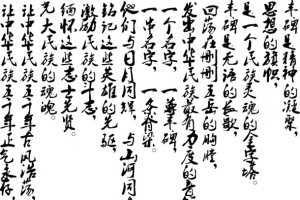 丰碑是精神的凝聚,
思想的旗帜,
是一个民族灵魂的金字塔。
丰碑是无语的长歌,
回荡在三山五岳的胸膛,
发出中华民族最有力度的音
一个名字,一尊丰碑
一串名字,一条脊梁。
他们与日月同辉,与山河同
铭记这些英雄的先驱,
激励民族的斗志,
缅怀这些志士先贤。
光大民族的魂魄。
让中华民族五千年古风浩荡,
让中华民族五千年正气永存,